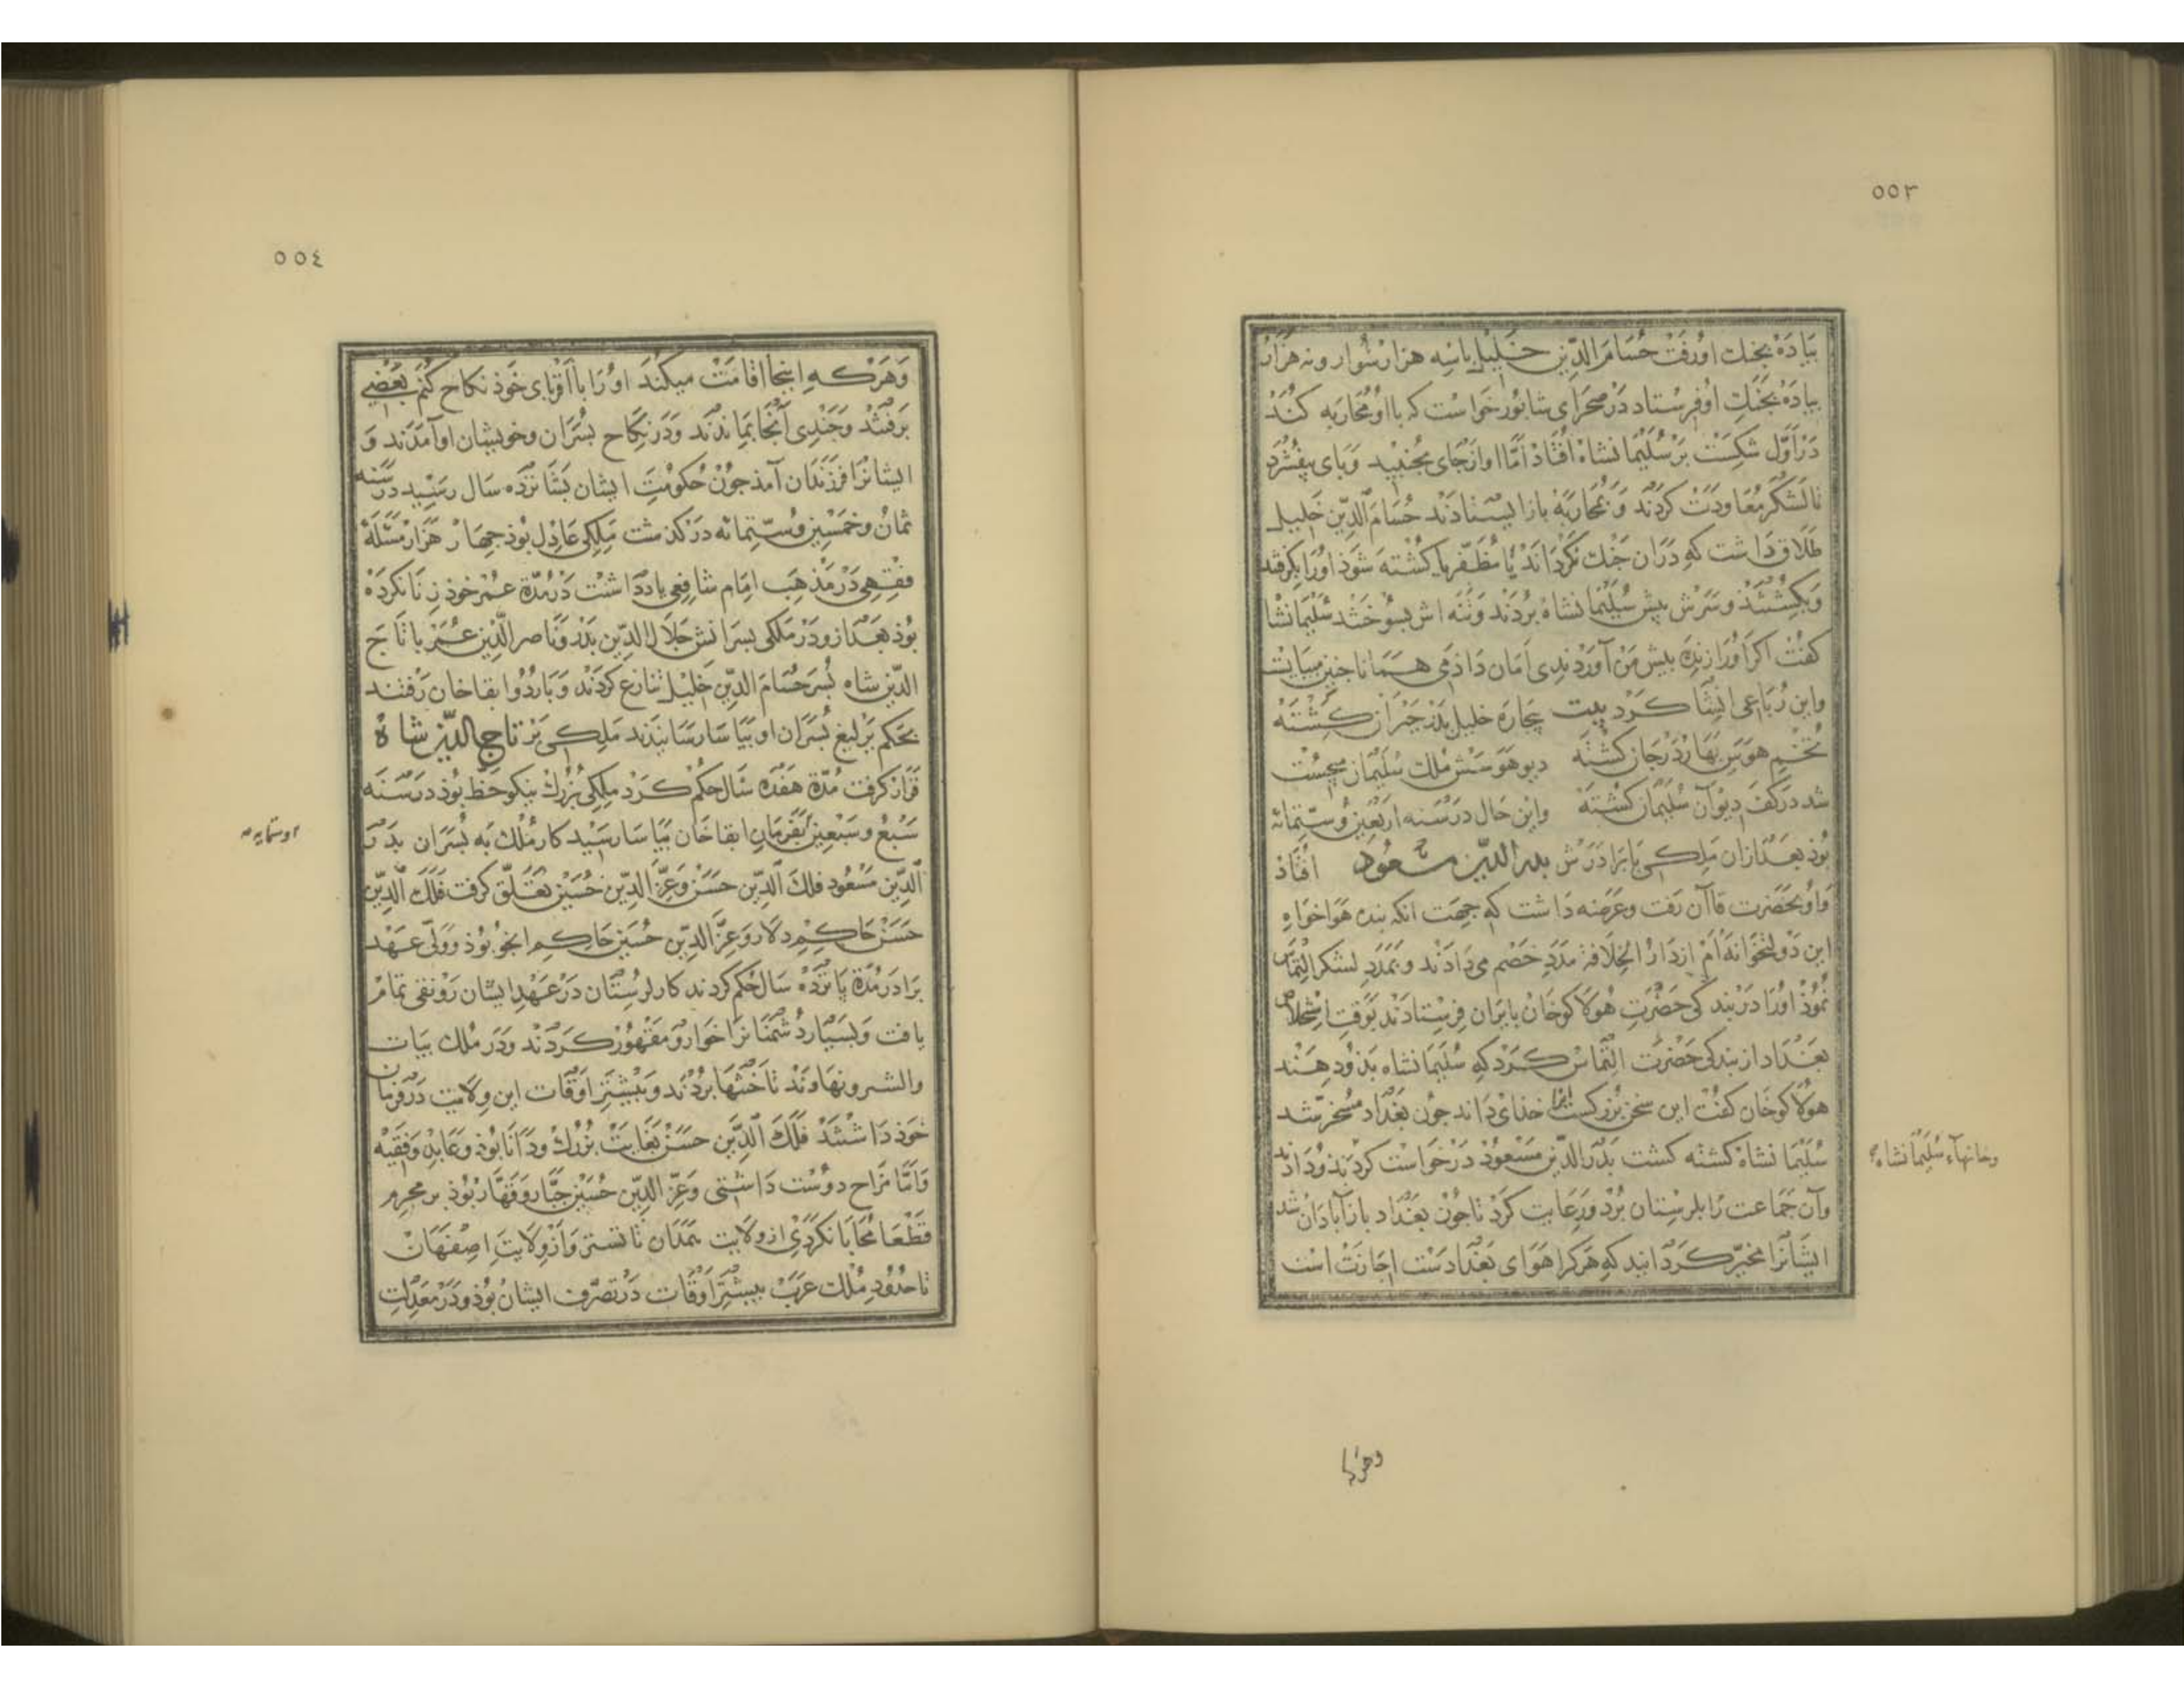 ٥٥٣
بیاده بجنك او رفت حسام الدین خلیل باسه هزار سوار ونه هزار
بیاده بجنك او فرستاد در صحرای شابور خواست که بااو محاربه کند
در اول شکست بر سلیمانشاه افتاذ اما او از جای نجنبید وبای بیفشرد
تا لشکر معاودت کردند و بمحاربه باز ایستادند حسام الدین خلیل
طلاق داشت که دران جنك نکرداند یا مظفر یا کشته شوذ اورا بکرفتند
وبکشتند وسرش پیش سلیمانشاه بردند وتنه اش بسوختند سلیمانشا
کفت اکر اورا زنده بیش من آوردندی امان داذمی همانا جنین میبایست
واین رباعی انشا کرد بیت بیچاره خلیل بدر حیران کشته
تخم هوس بهار در جان کشته دیو هوسش ملك سلیمان میجست
شد در کف دیوان سلیمان کشته واین حال در سنه اربعین وستمائه
بوذ بعد ازان ملکی با برادرش بدر الدین مسعود افتاذ
واو بحضرت قاآن رفت وعرضه داشت که جهت انکه بنده هواخواه
این دولتخوانه ام از دار الخلافة مدد خصم می دادند و بمدد لشکر التماس
نموذ اورا در بندکی حضرت هولاکوخان بایران فرستادند بوقت استخلاص
بغداد از بندکی حضرت التماس کرد که سلیمانشاه بذو دهند
هولاکوخان کفت این سخن بزرکست انرا خذای داند جون بغداد مسخر شد
سلیمانشاه کشته کشت بدر الدین مسعود در خواست کردند ودادند
وخانهاء سلیمانشاه
وآن جماعت را بلرستان برد ورعایت کرد تا جون بغداد باز آبادان شد
ایشانرا مخیر کردانید که هر کرا هوای بغدادست اجازت است
وهرکه
٥٥٤
وهرکه اینجا اقامت میکند اورا بااقربای خوذ نکاح کنم بعضی
برفتند وجندی آنجا بماندند ودر نکاح بسران وخویشان او آمدند و
ایشانرا فرزندان آمذ جون حکومت ایشان بشانزده سال رسید در سنه
ثمان وخمسین وستمائه در کذشت ملکی عادل بوذ جهار هزار مسئلهٔ
فقهی در مذهب امام شافعی یاد داشت در مدة عمر خوذ زنا نکرده
بوذ بعد ازو در ملکی بسرانش جلال الدین بدر وناصر الدین عمر با تاج
الدین شاه بسر حسام الدین خلیل تنازع کردند وباردوا بقاخان رفتند
بحکم یرلیغ بسران او بیاسا رسانیدند ملکی بر تاج الدین شاه
قرار کرفت مدة هفده سال حکم کرد ملکی بزرك نیکو خط بوذ در سنه
سبع وسبعین بفرمان ابقا خان بیاسا رسید کار ملك به بسران بدر
الدین مسعود فلك الدین حسن وعز الدین حسین تعلق کرفت فلك الدین
حسن حاکم دلار وعز الدین حسین حاکم انجو بوذ وولی عهد
برادر مدة پانزده سال حکم کردند کار لرستان در عهد ایشان رونقی تمام
یافت وبسیار دشمنانرا خوار ومقهور کردند ودر ملك بیات
والشتر ونهاوند تاختها بردند وبیشتر اوقات این ولایت در فرمان
خوذ داشتند فلك الدین حسن بغایت بزرك ودانا بوذ وعابد وفقیه
واما مزاح دوست داشتی وعز الدین حسین جبار وقهار بوذ بر مجرم
قطعا محابا نکردی از ولایت همدان تا تستر واز ولایت اصفهان
تا حدود ملك عرب بیشتر اوقات در تصرف ایشان بوذ ودر معدلت